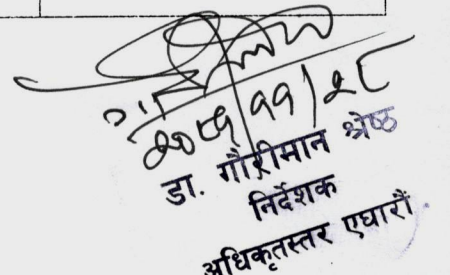 ११/२८
डा. गौरीमान श्रेष्ठ
निर्देशक
अधिकृतस्तर एघारौं